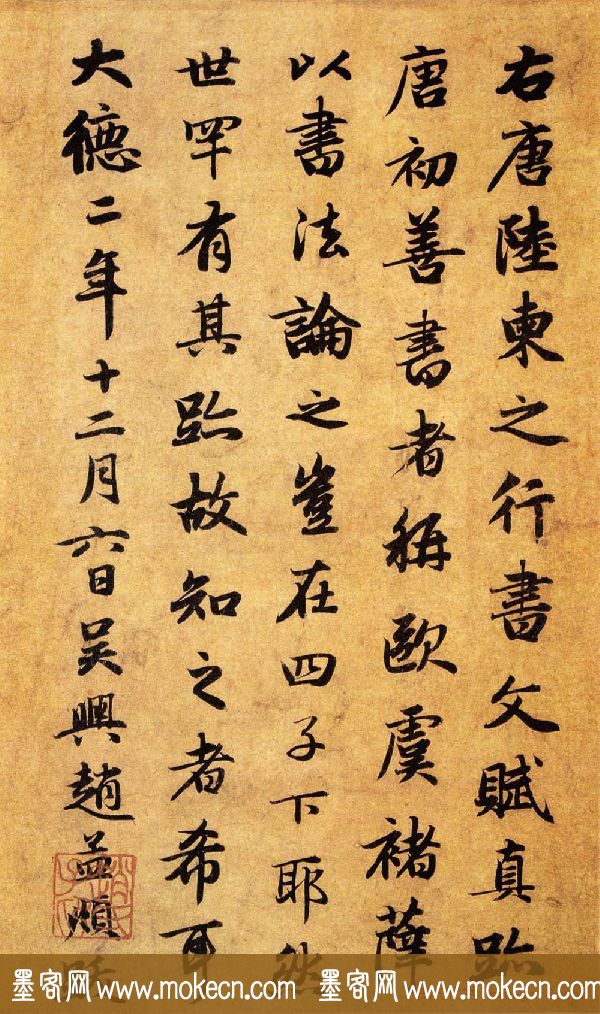 右唐陸柬之行書文賦真跡
唐初善書者稱歐虞褚薛
以書法論之豈在四子下耶然
世罕有其跡故知之者希耳
大德二年十二月六日吳興趙孟頫跋
墨客网 www.mokecn.com 墨客网 www.mokecn.com